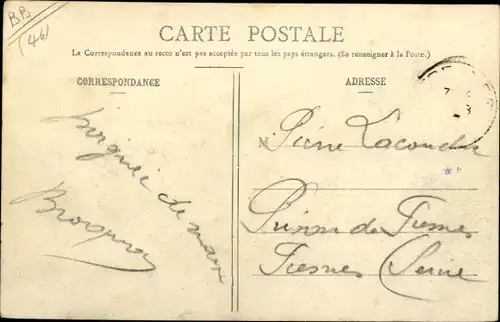 BB
(46)
CARTE POSTALE
La Correspondance au recto n'est pas acceptée par tous les pays étrangers. (Se renseigner à la Poste.)
CORRESPONDANCE
ADRESSE
poignée de main
M Pierre
Prison de Fresnes
Fresnes (Seine